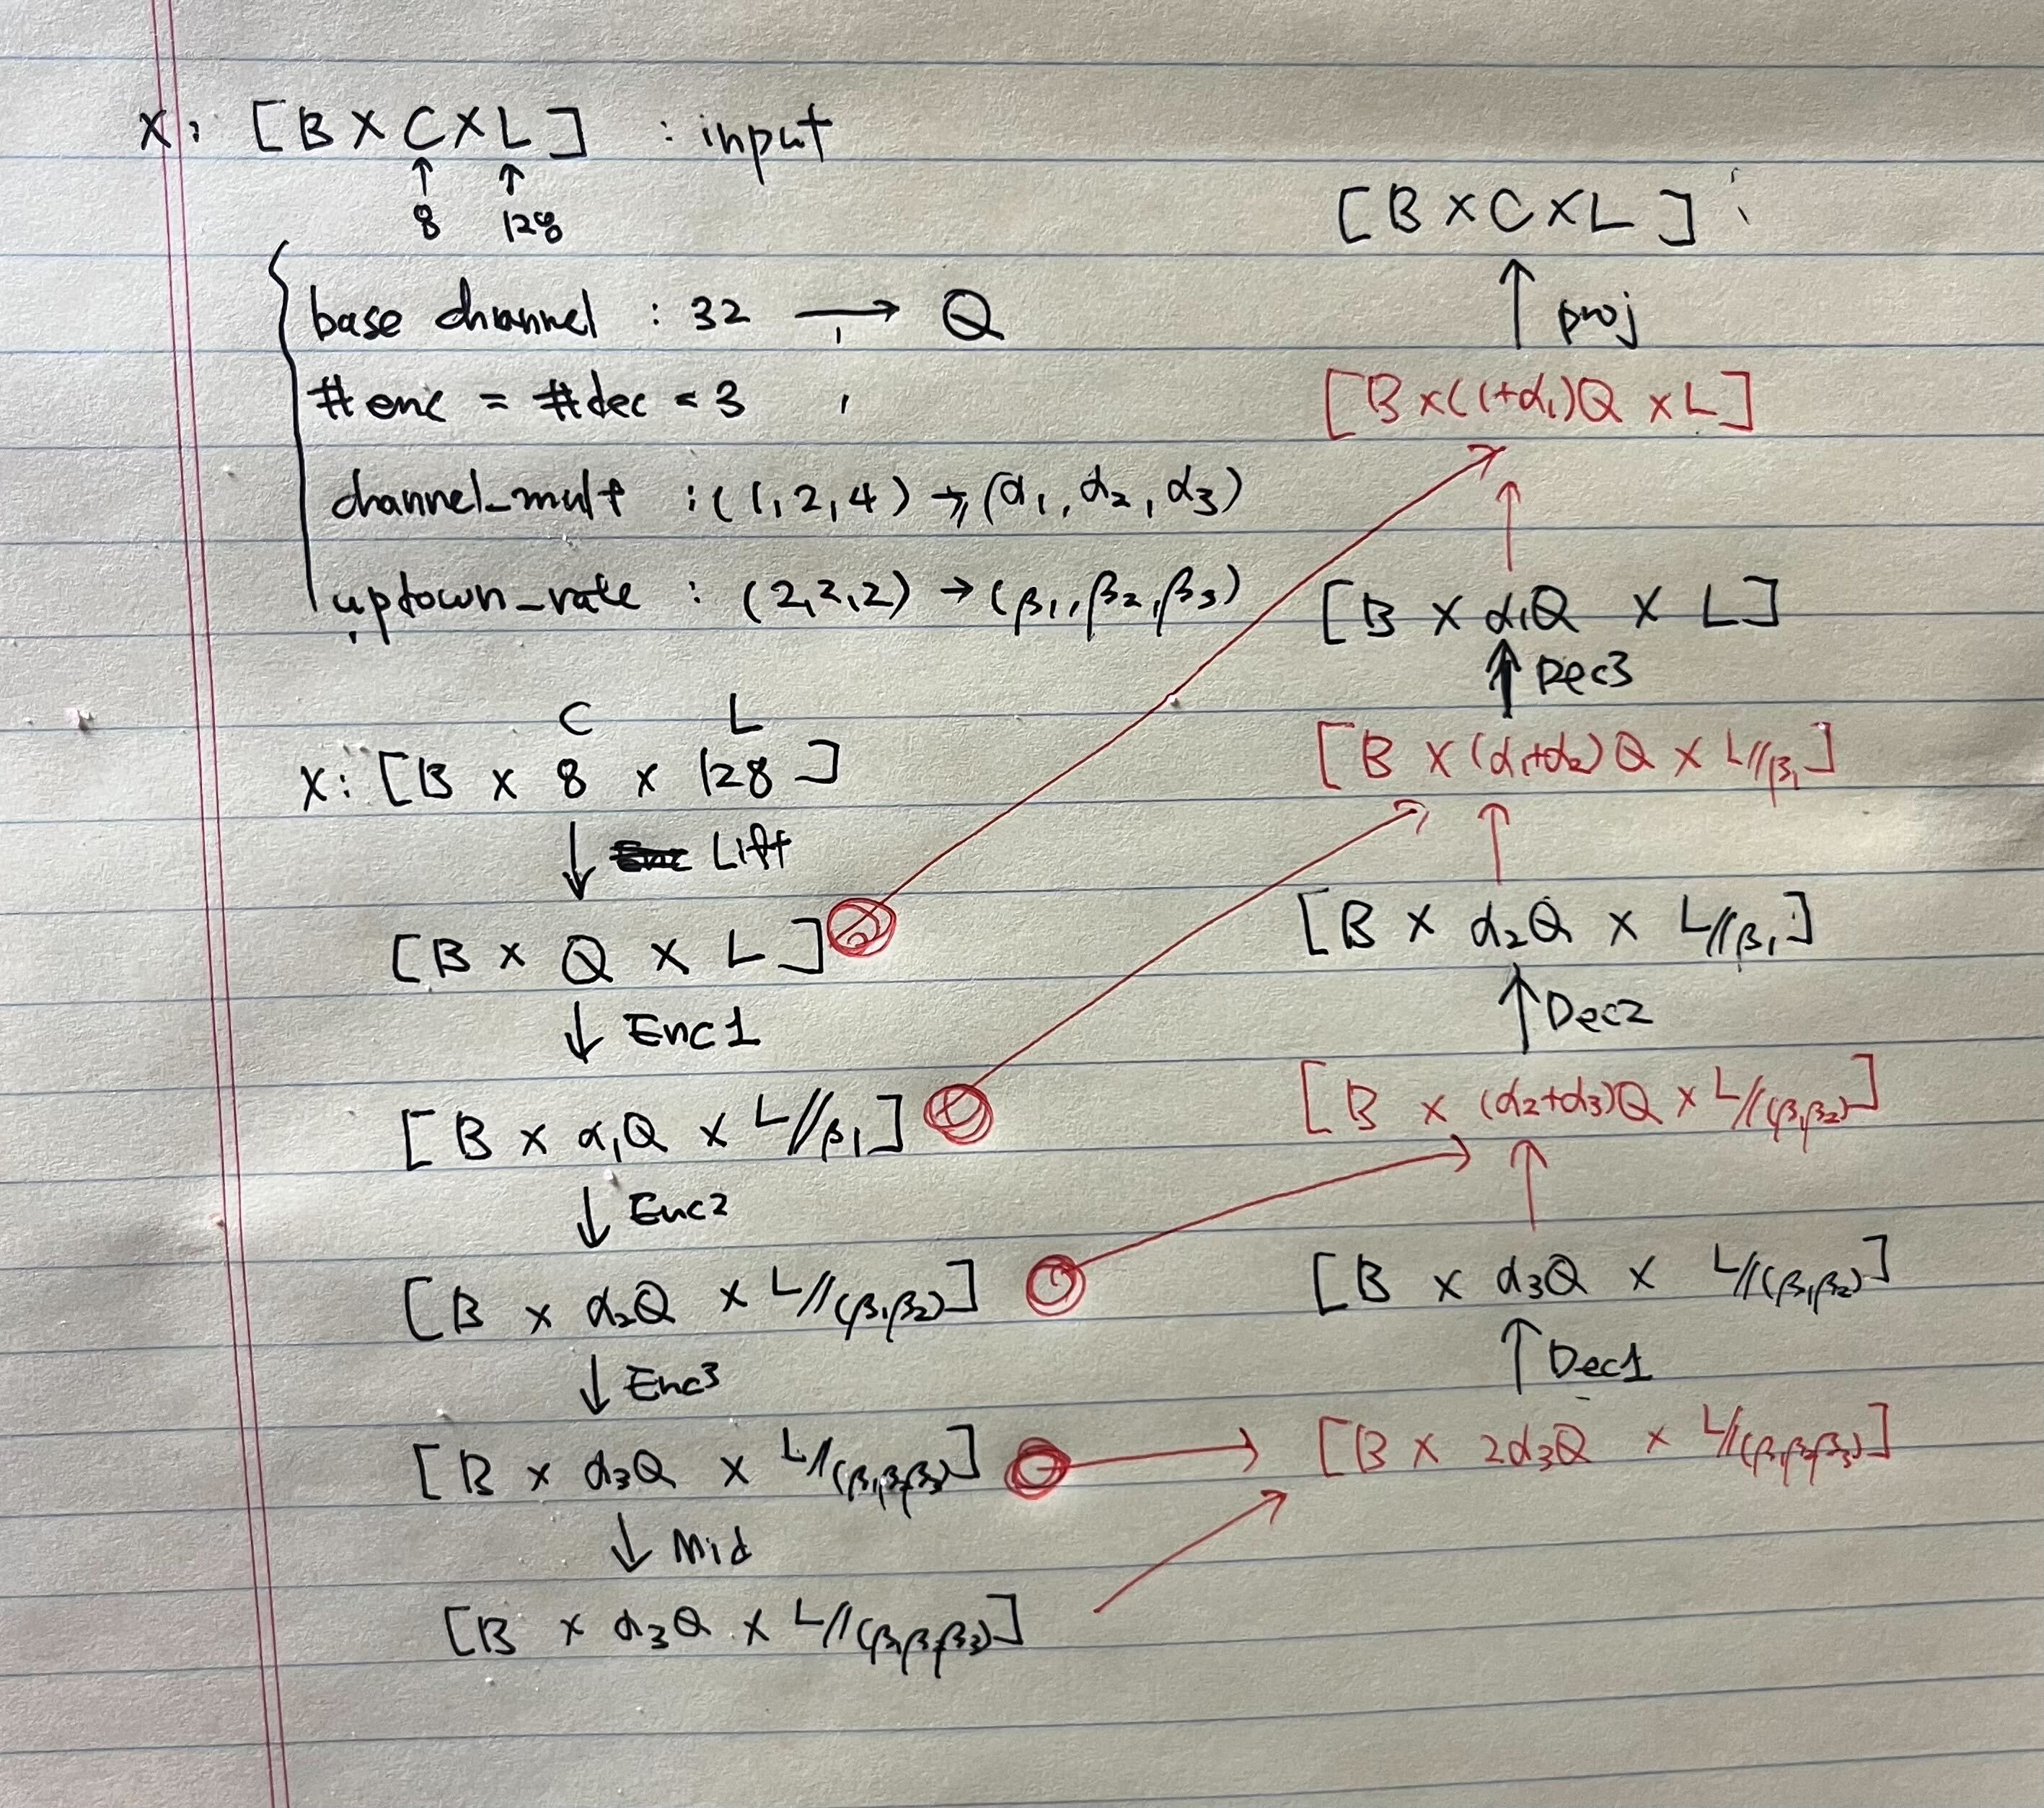 X: [B × C × L] : input
↑ ↑
8 128
base channel : 32 → Q
#enc = #dec = 3
channel_mult : (1, 2, 4) → (α₁, α₂, α₃)
uptown_rate : (2, 2, 2) → (β₁, β₂, β₃)
C L
X: [B × 8 × 128]
↓ Lift
[B × Q × L]
↓ Enc1
[B × α₁Q × L//β₁]
↓ Enc2
[B × α₂Q × L//(β₁β₂)]
↓ Enc3
[B × α₃Q × L//(β₁β₂β₃)]
↓ Mid
[B × α₃Q × L//(β₁β₂β₃)]
[B × C × L] :
↑ proj
[B × (1+α₁)Q × L]
↑
[B × α₁Q × L]
↑ Dec3
[B × (α₁+α₂)Q × L//β₁]
↑
[B × α₂Q × L//β₁]
↑ Dec2
[B × (α₂+α₃)Q × L//(β₁β₂)]
↑
[B × α₃Q × L//(β₁β₂)]
↑ Dec1
[B × 2α₃Q × L//(β₁β₂β₃)]